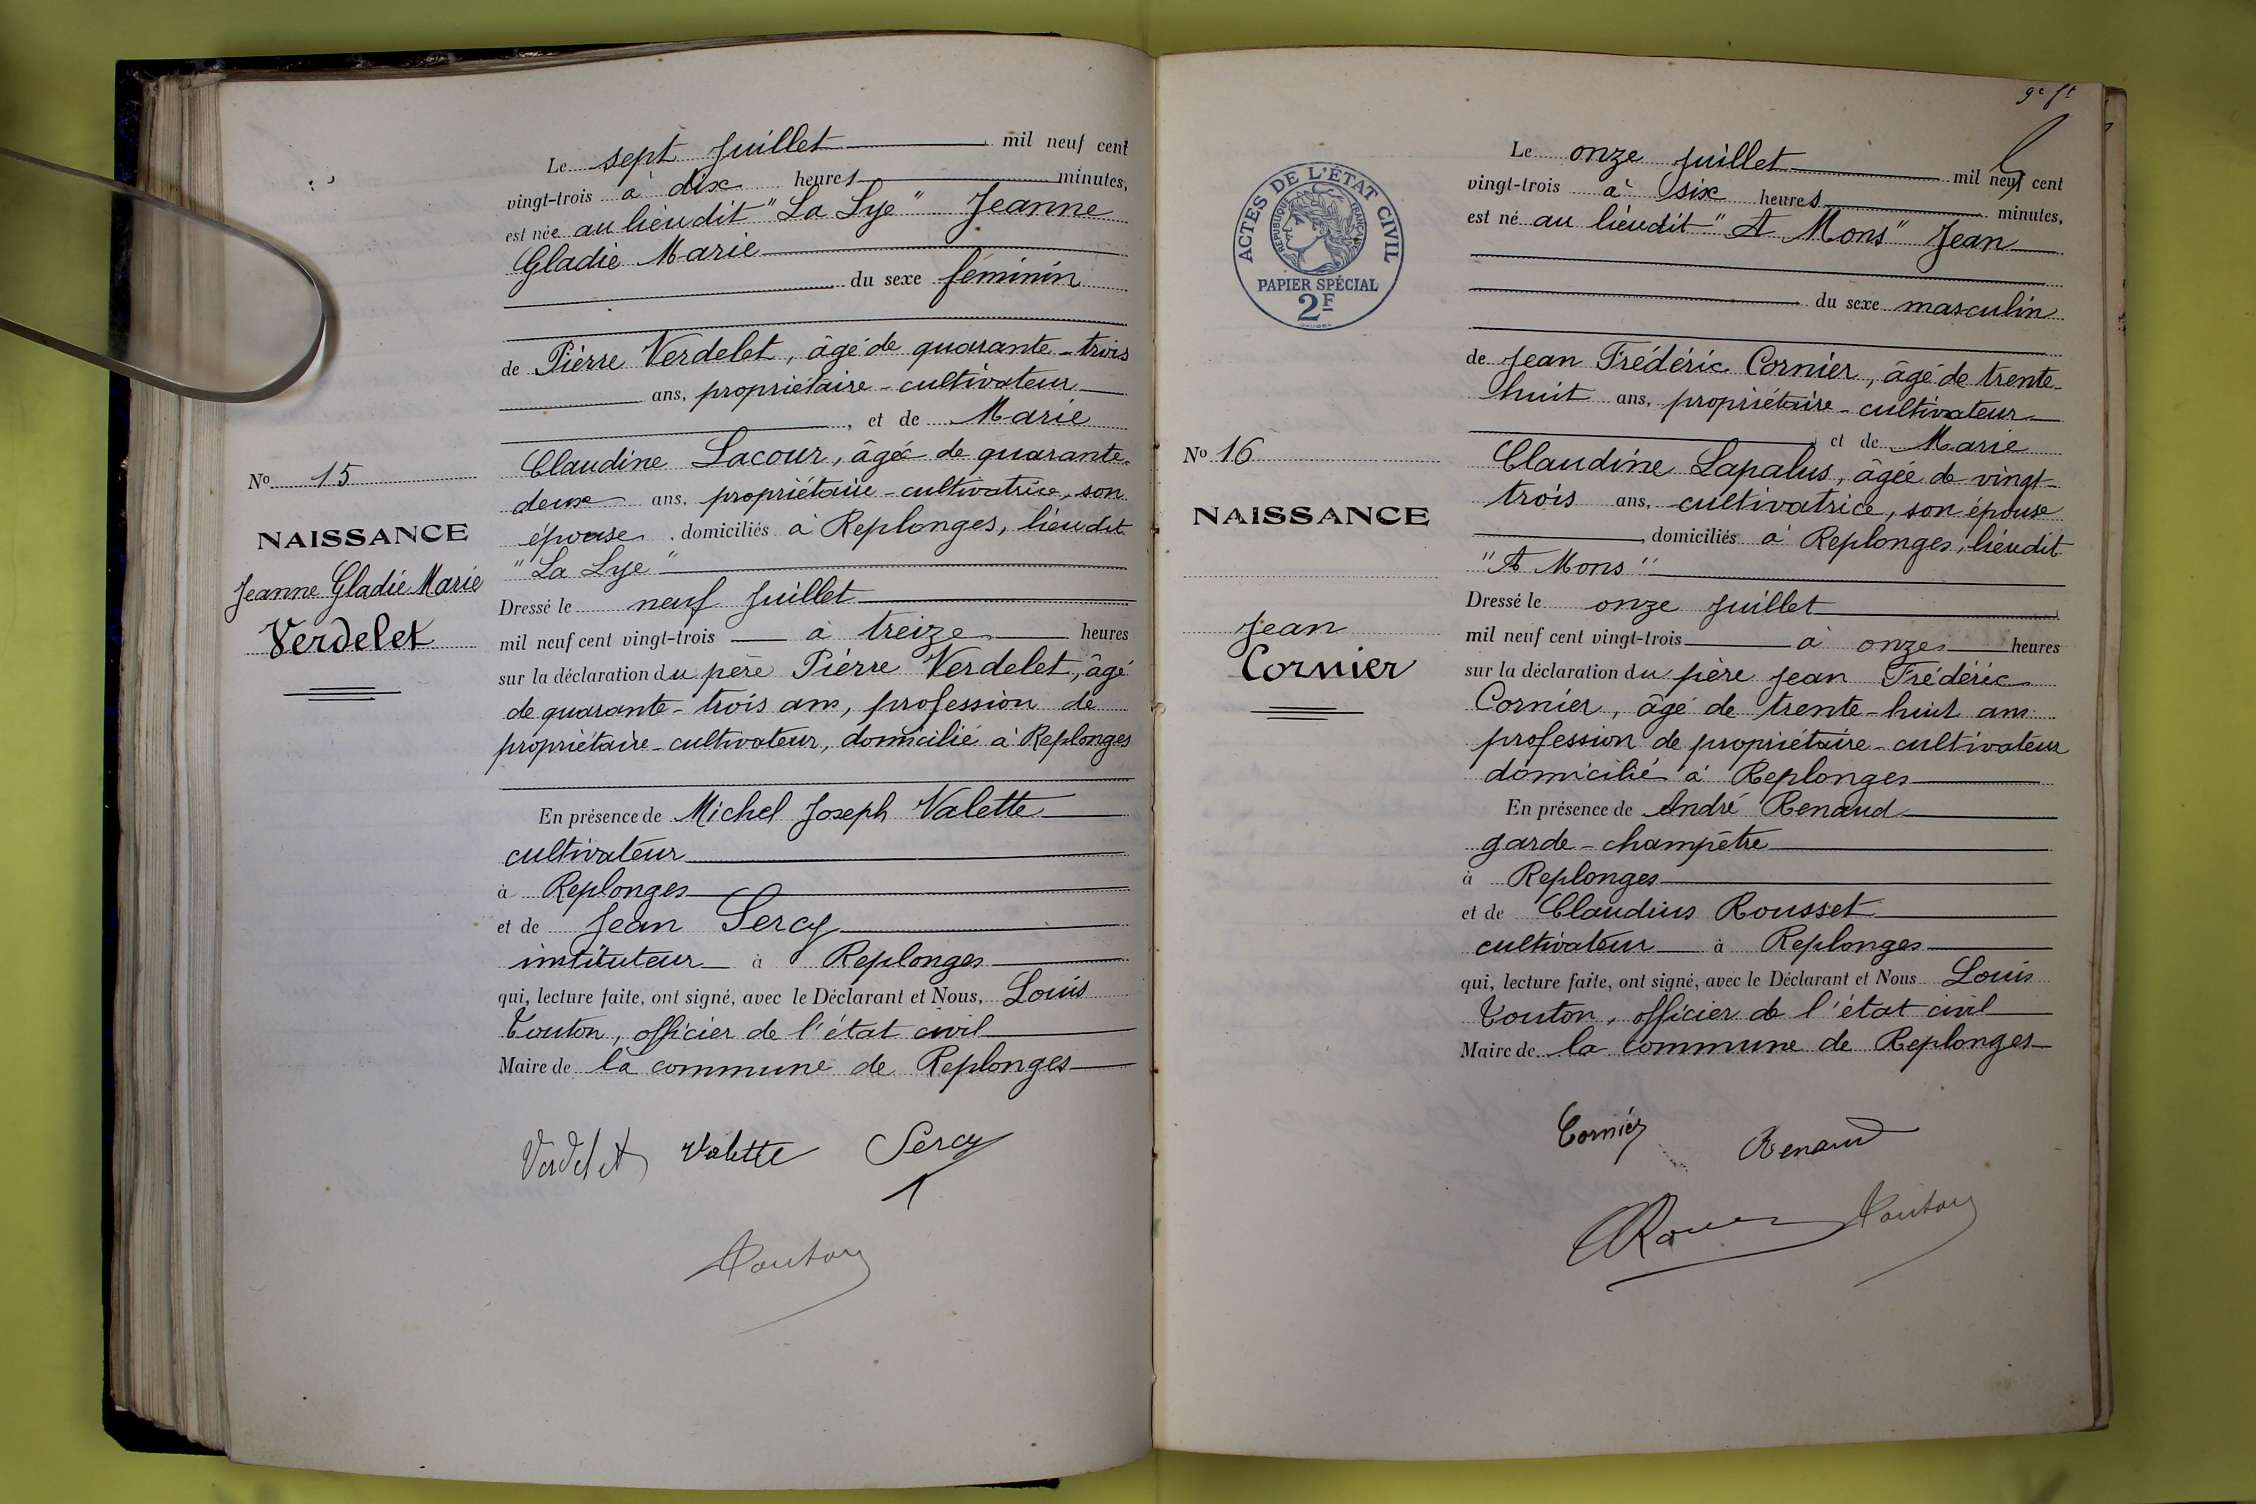 Le sept juillet mil neuf cent
vingt-trois à dix heures minutes,
est née au lieudit "La Lye" Jeanne
Gladie Marie
du sexe féminin
de Pierre Verdelet, âgé de quarante-trois
ans, propriétaire-cultivateur
, et de Marie
Claudine Lacour, âgée de quarante-
deux ans, propriétaire-cultivatrice, son
épouse, domiciliés à Replonges, lieudit
"La Lye"
Dressé le neuf juillet
mil neuf cent vingt-trois à treize heures
sur la déclaration du père Pierre Verdelet, âgé
de quarante-trois ans, profession de
propriétaire-cultivateur, domicilié à Replonges
En présence de Michel Joseph Valette
cultivateur
à Replonges
et de Jean Sercy
instituteur à Replonges
qui, lecture faite, ont signé, avec le Déclarant et Nous, Louis
Touton, officier de l'état civil
Maire de la commune de Replonges
No 15
NAISSANCE
Jeanne Gladie Marie
Verdelet
Verdelet Valette Sercy
Touton
9e ft
ACTES DE L'ÉTAT CIVIL
RÉPUBLIQUE FRANÇAISE
PAPIER SPÉCIAL
2F
No 16
NAISSANCE
Jean
Cornier
Le onze juillet mil neuf cent
vingt-trois à six heures minutes,
est né au lieudit "A Mons" Jean
du sexe masculin
de Jean Frédéric Cornier, âgé de trente-
huit ans, propriétaire-cultivateur
, et de Marie
Claudine Lapalus, âgée de vingt-
trois ans, cultivatrice, son épouse
, domiciliés à Replonges, lieudit
"A Mons"
Dressé le onze juillet
mil neuf cent vingt-trois à onze heures
sur la déclaration du père Jean Frédéric
Cornier, âgé de trente-huit ans
profession de propriétaire-cultivateur
domicilié à Replonges
En présence de André Renaud
garde-champêtre
à Replonges
et de Claudius Rousset
cultivateur à Replonges
qui, lecture faite, ont signé, avec le Déclarant et Nous Louis
Touton, officier de l'état civil
Maire de la commune de Replonges
Cornier Renaud
Touton